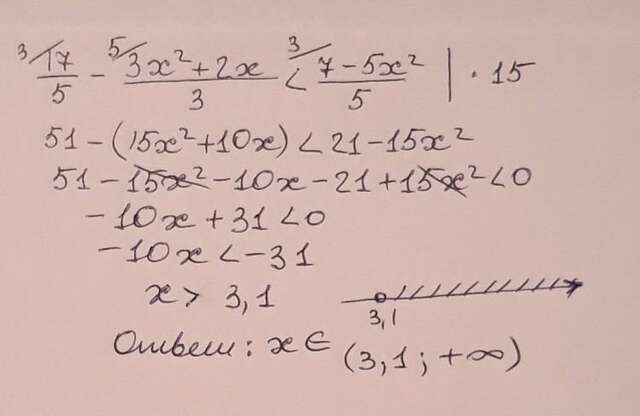 ³/17/5 - ⁵/3x²+2x/3 < ³/7-5x²/5 | · 15
51 - (15x²+10x) < 21 - 15x²
51 - 15x² - 10x - 21 + 15x² < 0
-10x + 31 < 0
-10x < -31
x > 3,1
3,1
Ответ: x ∈ (3,1; +∞)